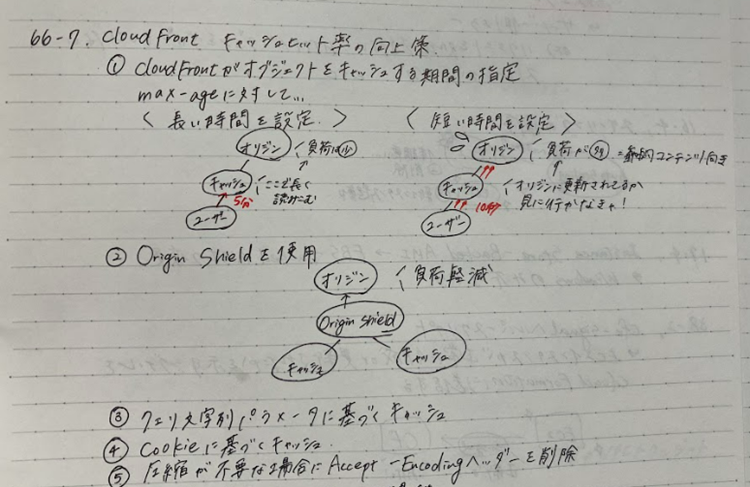 66-7. CloudFront キャッシュヒット率の向上策.
① CloudFrontがオブジェクトをキャッシュする期間の指定
max-ageに対して...
〈 長い時間を設定. 〉 〈 短い時間を設定 〉
オリジン 負荷は少
キャッシュ ここで長く
読みこむ
5分
ユーザー
オリジン 負荷が多 = 動的コンテンツ向き
キャッシュ オリジンに更新されてるか
見に行かなきゃ!
10秒
ユーザー
② Origin Shieldを使用
オリジン 負荷軽減
Origin Shield
キャッシュ キャッシュ
③ クエリ文字列パラメータに基づくキャッシュ
④ Cookieに基づくキャッシュ.
⑤ 圧縮が不要な場合にAccept-Encodingヘッダーを削除